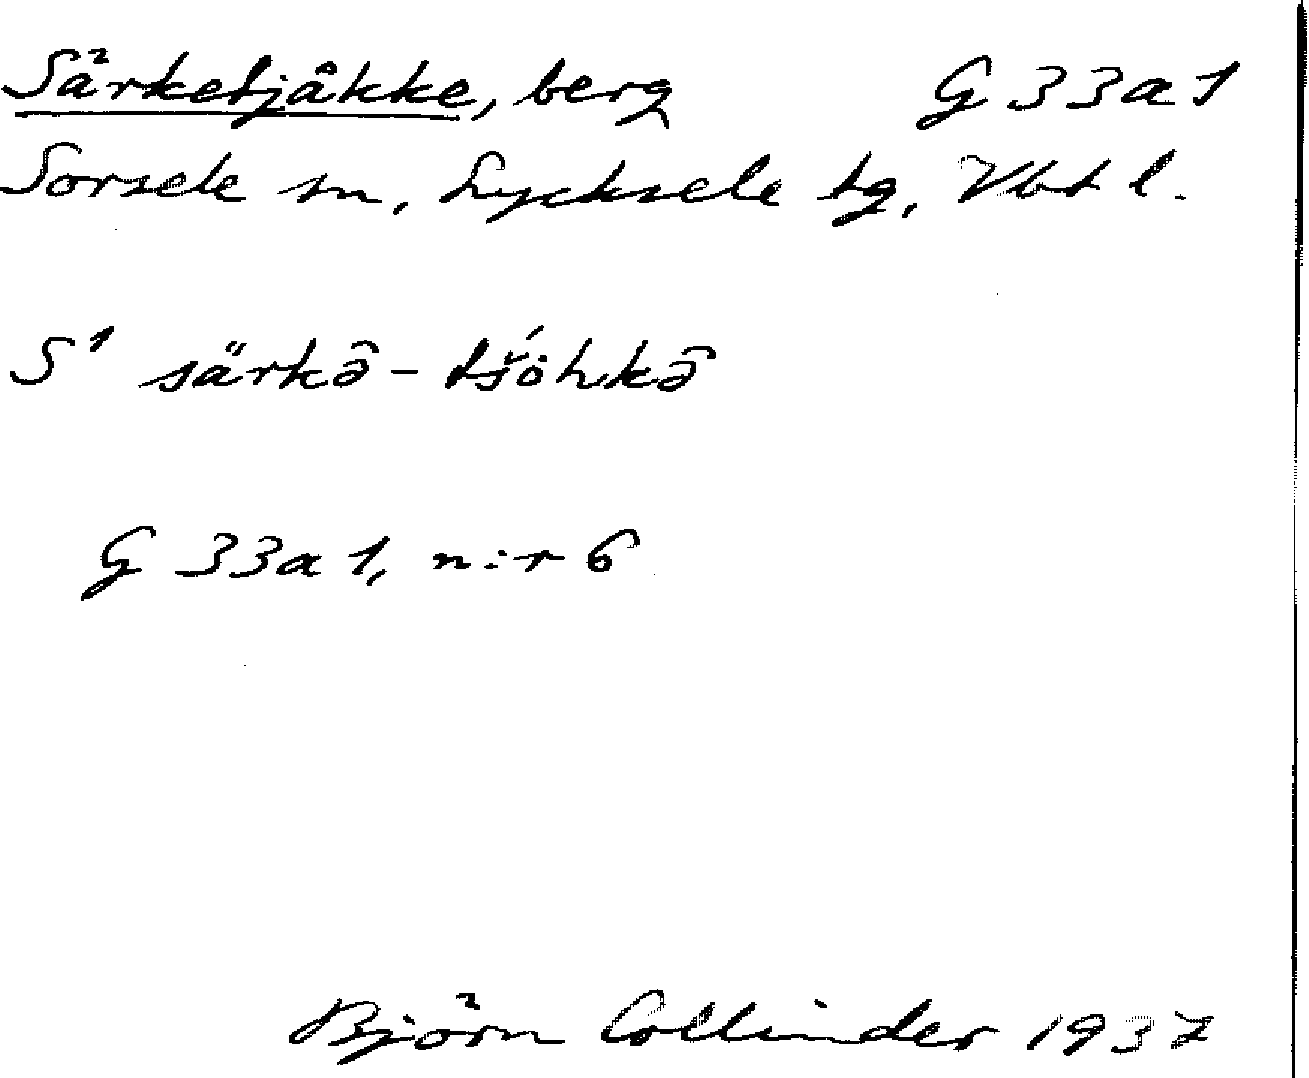 Särketjåkke, berg G 33a1
Sorsele sn, Lycksele tg, Vbt l.
S¹ särkə̂ - tš́öhkə̂
G 33a1, n:r 6
Björn Collinder 1937